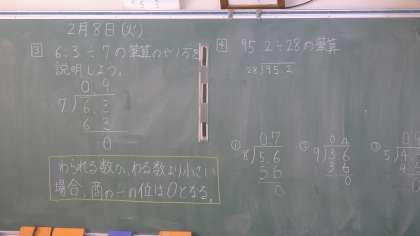 2月8日(火)
③ 6.3÷7の筆算のやり方を
説明しよう。
0.9
7)6.3
6 3
0
わられる数が、わる数より小さい
場合、商の一の位は0となる。
④ 95.2÷28の筆算
28)95.2
① 0.7
8)5.6
5 6
0
② 0.4
9)3.6
3 6
0
③
5)4.